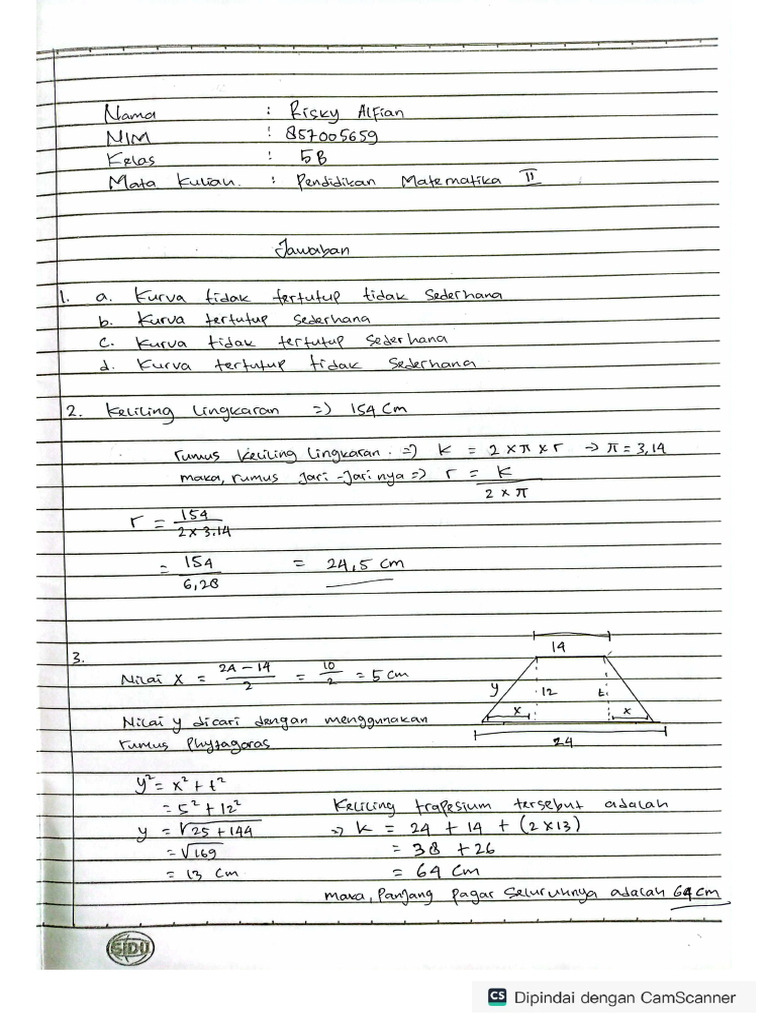 Nama : Risky Alfian
NIM : 857005659
Kelas : 5B
Mata Kuliah. : Pendidikan Matematika II
Jawaban
1. a. Kurva tidak tertutup tidak sederhana
b. Kurva tertutup sederhana
c. Kurva tidak tertutup sederhana
d. Kurva tertutup tidak sederhana
2. Keliling Lingkaran => 154 cm
rumus keliling lingkaran. => K = 2 x π x r → π = 3,14
maka, rumus jari-jarinya => r = K / 2 x π
r = 154 / 2 x 3.14
= 154 / 6,28 = 24,5 cm
3.
14
Nilai x = 24 - 14 / 2 = 10 / 2 = 5 cm
y 12 t
x x
24
Nilai y dicari dengan menggunakan
rumus Phytagoras
y² = x² + t²
= 5² + 12²
y = √25 + 144
= √169
= 13 cm
Keliling trapesium tersebut adalah
=> K = 24 + 14 + (2 x 13)
= 38 + 26
= 64 cm
maka, Panjang pagar seluruhnya adalah 64 cm
SIDU
CS Dipindai dengan CamScanner